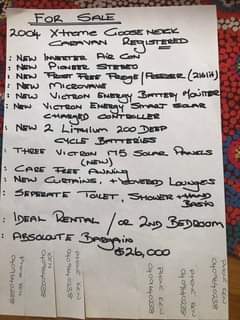 FOR SALE
2004 X-treme GOOSE NECK
CARAVAN REGISTERED
: NEW INVERTER AIR CON
: NEW PIONEER STEREO
: NEW FROST FREE FRIDGE/FREEZER
: NEW MICROWAVE
: NEW VICTRON ENERGY BATTERY MONITOR
: NEW VICTRON ENERGY SMART SOLAR
CHARGED CONTROLLER
: NEW 2 LITHIUM 200 DEEP
CYCLE BATTERIES
: THREE VICTRON 175 SOLAR PANELS
(NEW)
: CARE FREE AWNING
: NEW CURTAINS, + COVERED LOUNGES
: SEPERATE TOILET, SHOWER + HAND
BASIN
: IDEAL RENTAL / OR 2ND BEDROOM
: ABSOLUTE BARGAIN
$26,000